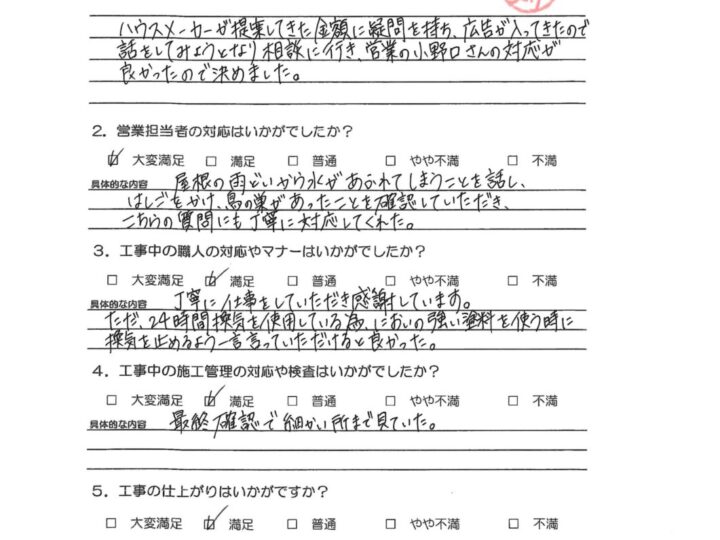 ハウスメーカーが提案してきた金額に疑問を持ち、広告が入ってきたので
話をしてみようとなり相談に行き、営業の小野口さんの対応が
良かったので決めました。
2. 営業担当者の対応はいかがでしたか？
☑ 大変満足 □ 満足 □ 普通 □ やや不満 □ 不満
具体的な内容 屋根の雨どいから水があふれてしまうことを話し、
はしごをかけ、鳥の巣があったことを確認していただき、
こちらの質問にも丁寧に対応してくれた。
3. 工事中の職人の対応やマナーはいかがでしたか？
□ 大変満足 ☑ 満足 □ 普通 □ やや不満 □ 不満
具体的な内容 丁寧に仕事をしていただき感謝しています。
ただ、24時間換気を使用している為、においの強い塗料を使う時に
換気を止めるよう一言言っていただけると良かった。
4. 工事中の施工管理の対応や検査はいかがでしたか？
□ 大変満足 ☑ 満足 □ 普通 □ やや不満 □ 不満
具体的な内容 最終確認で細かい所まで見ていた。
5. 工事の仕上がりはいかがですか？
□ 大変満足 ☑ 満足 □ 普通 □ やや不満 □ 不満